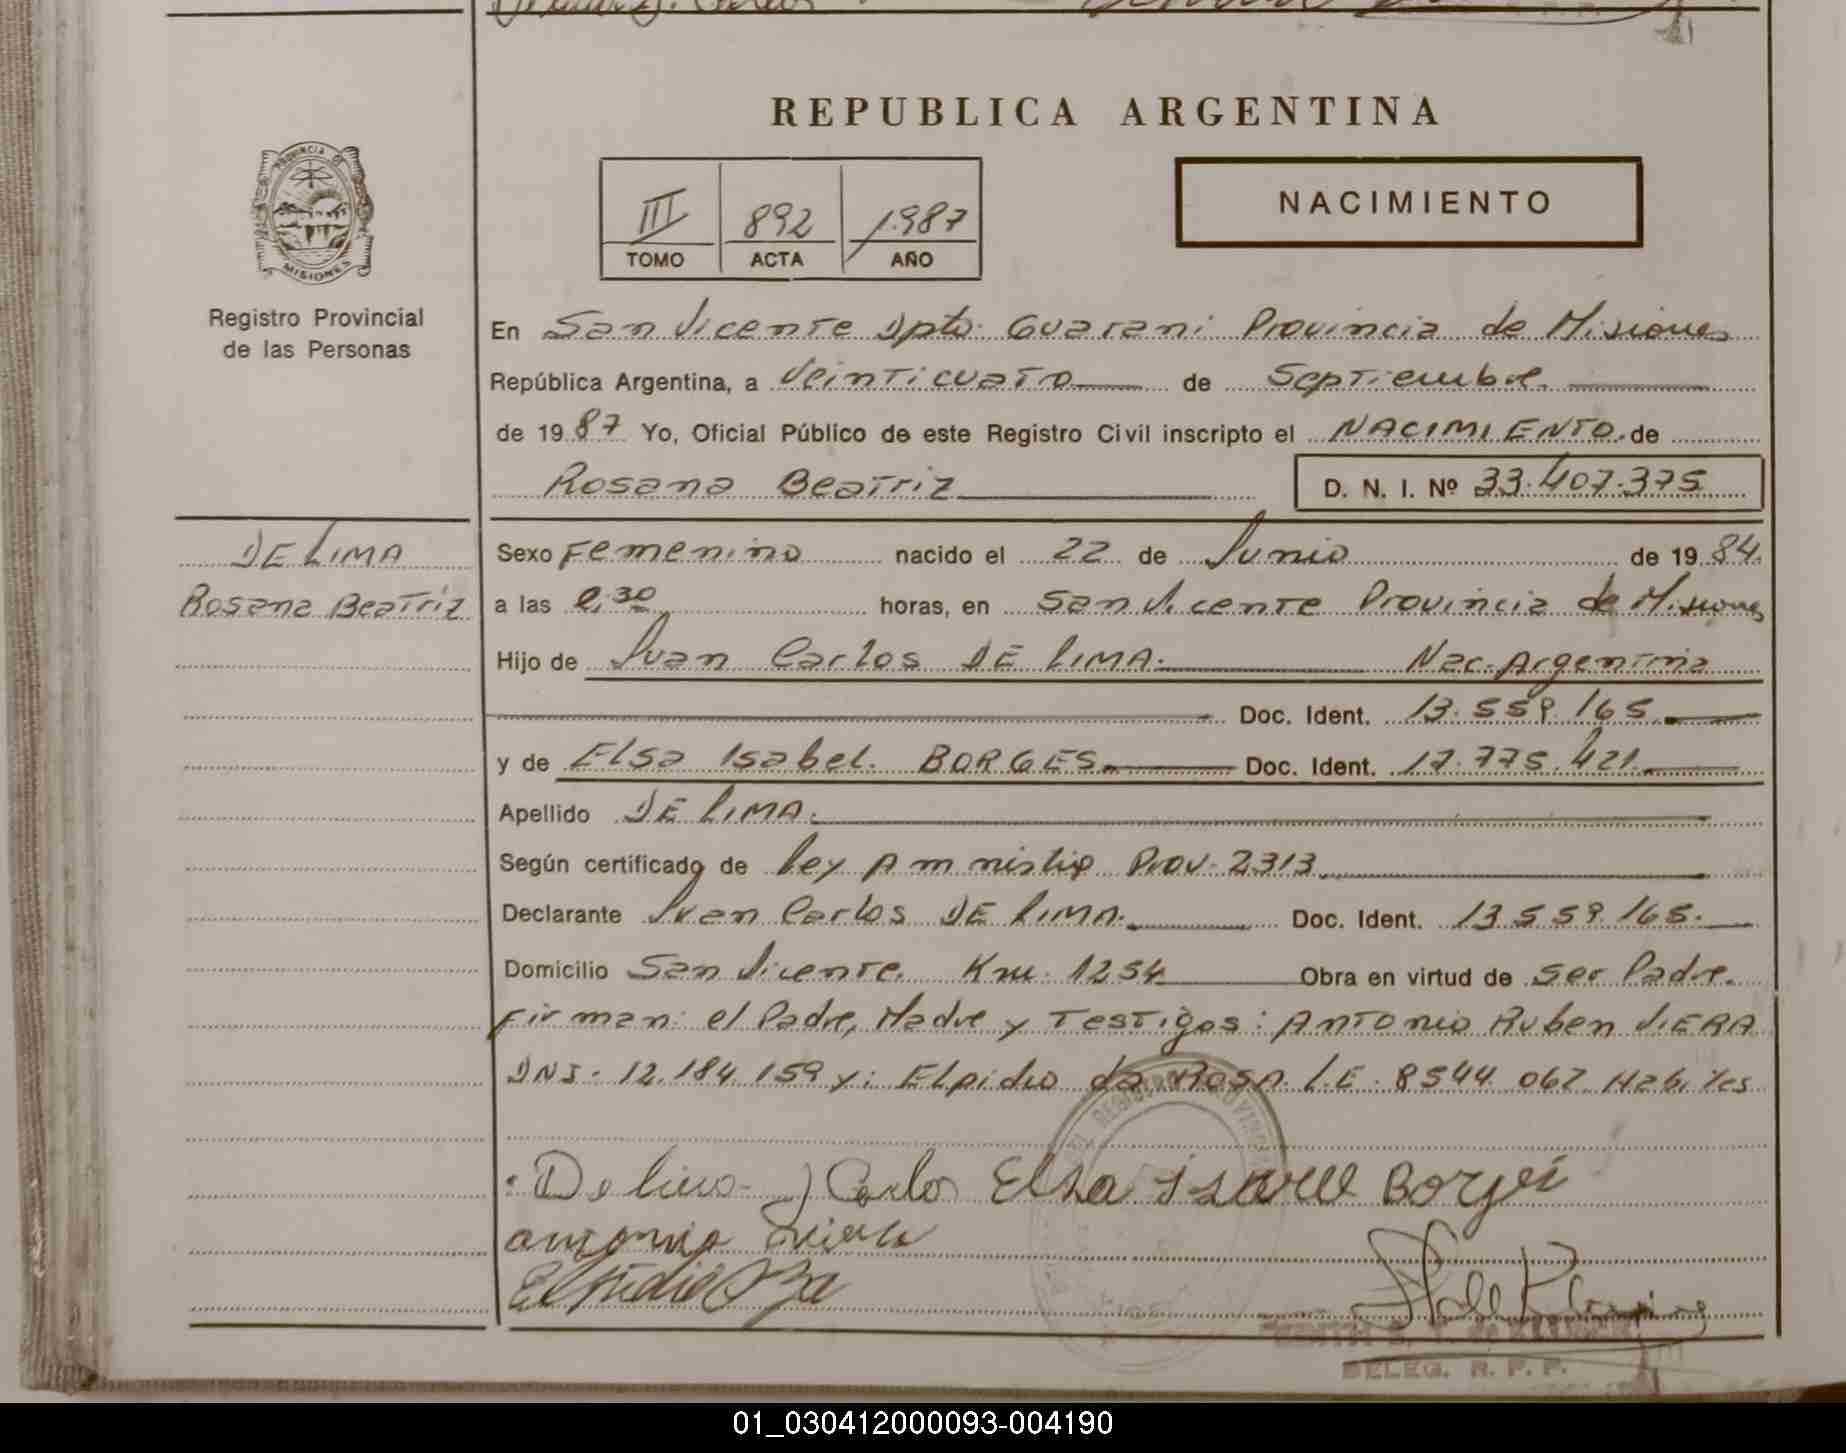 REPUBLICA ARGENTINA
PROVINCIA DE
MISIONES
Registro Provincial
de las Personas
III 892 1.987
TOMO ACTA AÑO
NACIMIENTO
En San Vicente Dpto. Guarani Provincia de Misiones
República Argentina, a Veinticuatro de Septiembre
de 1987 Yo, Oficial Público de este Registro Civil inscripto el NACIMIENTO de
Rosana Beatriz D. N. I. Nº 33.407.375
DE LIMA
Rosana Beatriz
Sexo Femenino nacido el 22 de Junio de 1984.
a las 2,30 horas, en San Vicente Provincia de Misiones
Hijo de Juan Carlos DE LIMA. Nac. Argentina
Doc. Ident. 13.559.165
y de Elsa Isabel. BORGES. Doc. Ident. 17.775.421
Apellido DE LIMA.
Según certificado de Ley Amnistia Prov. 2313
Declarante Juan Carlos DE LIMA. Doc. Ident. 13.559.165.
Domicilio San Vicente. Km. 1254 Obra en virtud de ser Padre.
Firman: el Padre, Madre y Testigos: Antonio Ruben VIERA
DNI. 12.184.159 y: Elpidio da ROSA. L.E. 8544.067 Habiles
De lima J Carlos Elsa Isabel Borges
antonio Viera
DELEG. R. P. P.
01_030412000093-004190